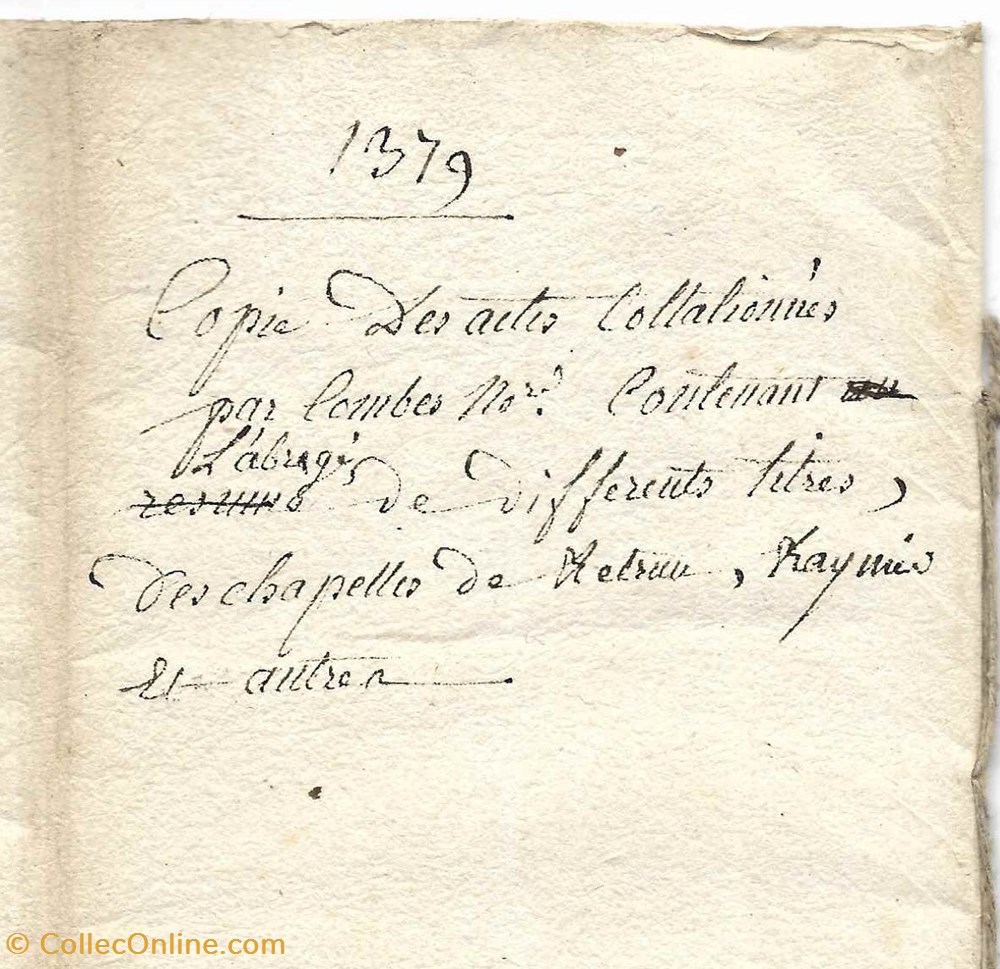 1379
Copie Des actes Collationnés
par Combes Nore. Contenant un
L'abregé
resumé de differents titres,
Des chapelles de , Raymés
Et autres
© CollecOnline.com